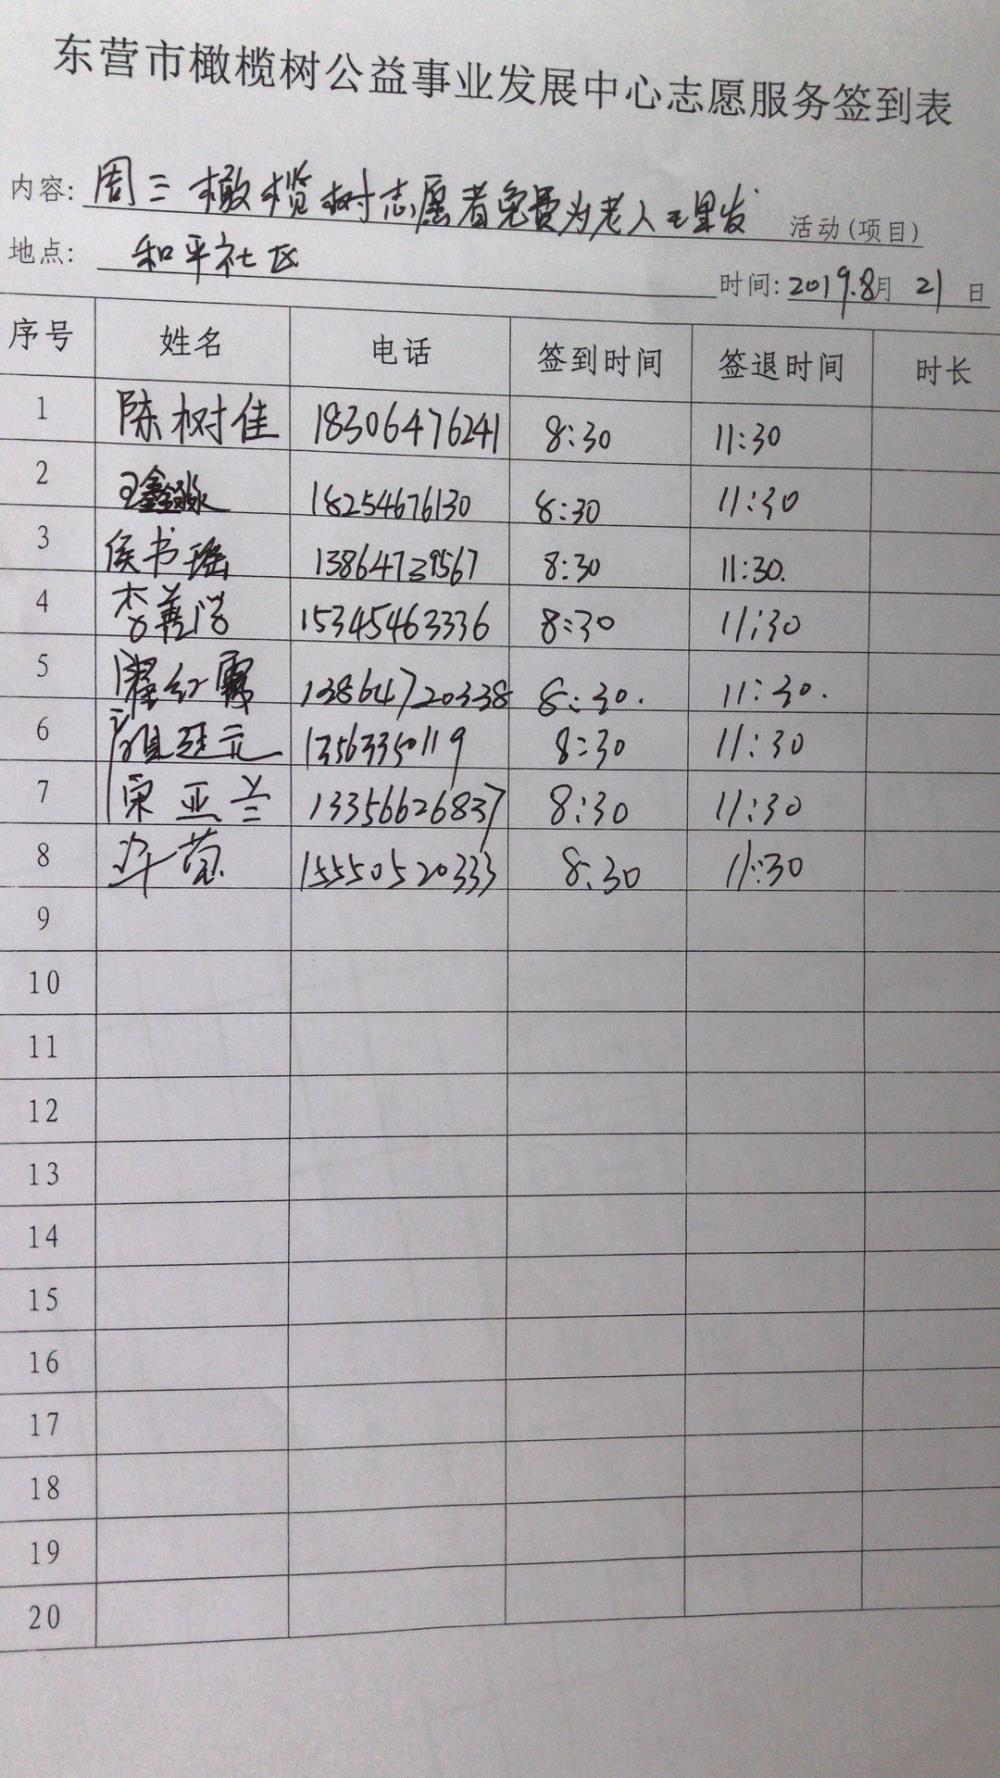 东营市橄榄树公益事业发展中心志愿服务签到表
内容: 周三橄榄树志愿者免费为老人理发 活动(项目)
地点: 和平社区 时间: 2019.8月 21 日
序号 姓名 电话 签到时间 签退时间 时长
1 陈树佳 18306476241 8:30 11:30
2 王鑫淼 18254676130 8:30 11:30
3 侯书瑶 13864739567 8:30 11:30.
4 李善学 15345463336 8:30 11:30
5 红霞 13864720338 8:30. 11:30.
6 13563350119 8:30 11:30
7 宋亚兰 13356626837 8:30 11:30
8 15550520333 8:30 11:30
9
10
11
12
13
14
15
16
17
18
19
20